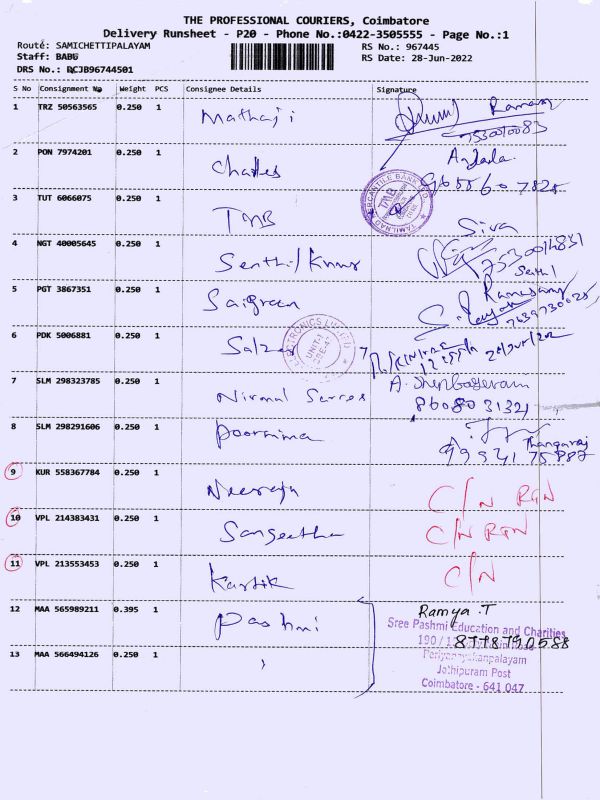 THE PROFESSIONAL COURIERS, Coimbatore
Delivery Runsheet - P20 - Phone No.:0422-3505555 - Page No.:1
Route: SAMICHETTIPALAYAM
RS No.: 967445
Staff: BABU
RS Date: 28-Jun-2022
DRS No.: BCJB96744501
S No Consignment No Weight PCS Consignee Details Signature
1 TRZ 50563565 0.250 1 Mathaji
2 PON 7974201 0.250 1 Charles
3 TUT 6066075 0.250 1 TMB
TAMILNAD MERCANTILE BANK LTD.
TMB
Siva
4 NGT 40005645 0.250 1 Senthil Kumar 7530014831
Senthil
5 PGT 3867351 0.250 1 Saigreen
6 PDK 5006881 0.250 1
ELECTRONICS LIMITED
UNIT-1
7 SLM 298323785 0.250 1 Nirmal
8608031321
8 SLM 298291606 0.250 1 Poornima Thangaraj
99941 75887
9 KUR 558367784 0.250 1 Neeraja C/N RTN
10 VPL 214383431 0.250 1 Sangeetha C/N RTN
11 VPL 213553453 0.250 1 Kartik C/N
12 MAA 565989211 0.395 1 Pashmi Ramya .T
Sree Pashmi Education and Charities
8778790588
Periyanayakanpalayam
13 MAA 566494126 0.250 1 Jothipuram Post
Coimbatore - 641 047